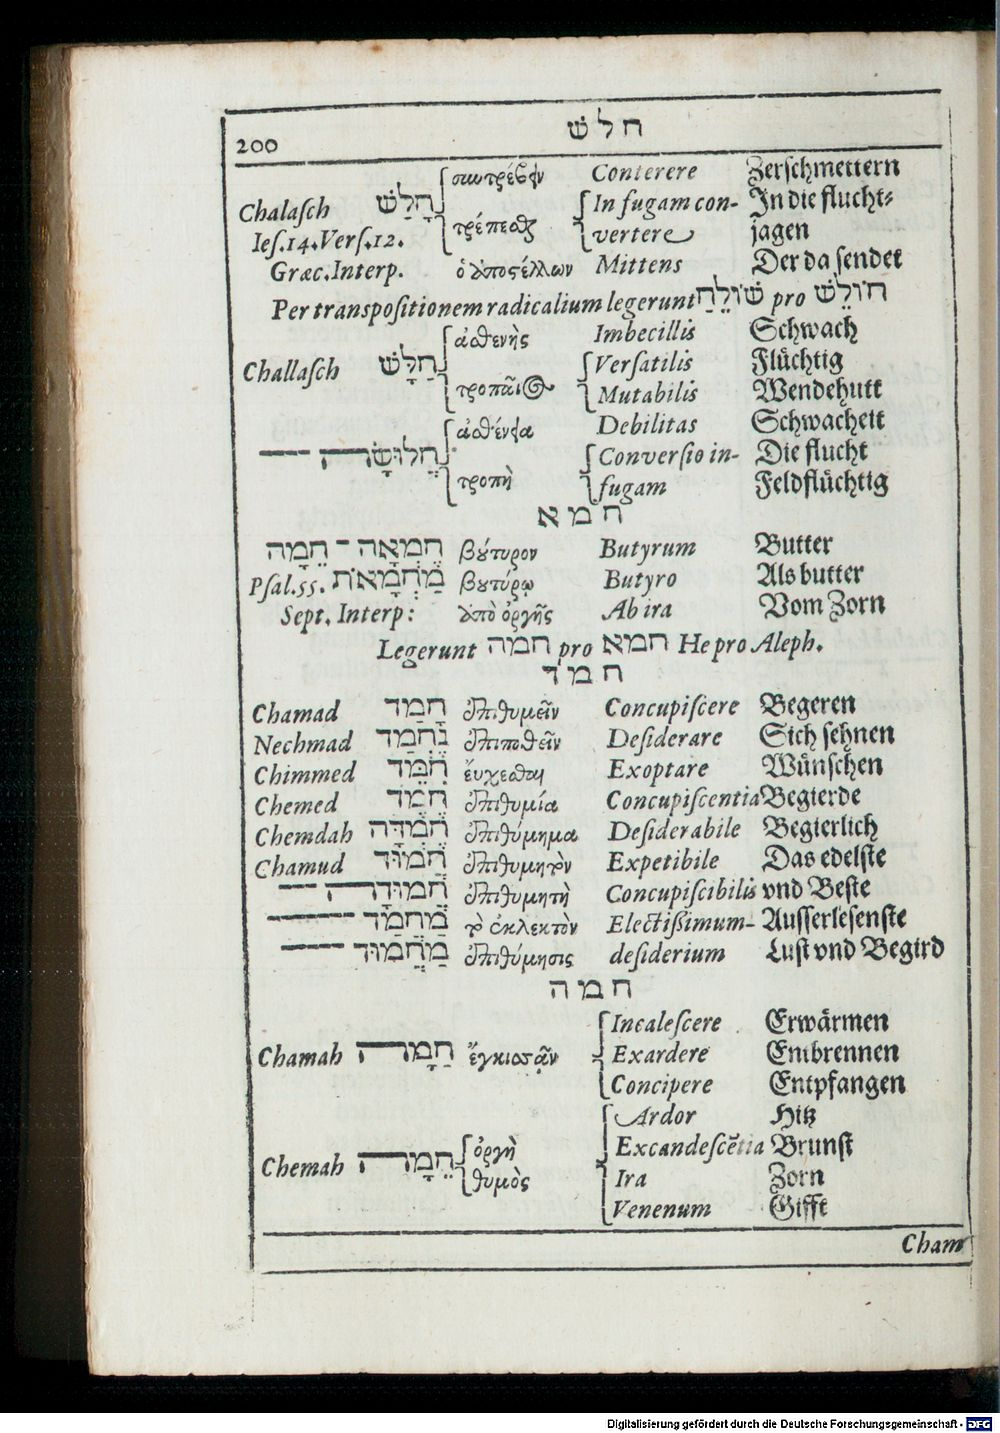 200 חלש
συντρέβειν Conterere Zerschmettern
Chalasch חָלַשׁ In fugam con- In die flucht-
Ies.14.Vers.12. τρέπεσθαι vertere jagen
Græc.Interp. ὁ ἀποστέλλων Mittens Der da sendet
Per transpositionem radicalium legerunt שׁוֹלֵחַ pro חוֹלֵשׁ
ἀσθενὴς Imbecillis Schwach
Challasch חַלָּשׁ Versatilis Flüchtig
τροπαῖος Mutabilis Wendehutt
ἀσθένεια Debilitas Schwacheit
חֲלוּשָׁה Conversio in- Die flucht
τροπὴ fugam Feldflüchtig
חמא
חֶמְאָה - חֵמָה βούτυρον Butyrum Butter
Psal.55. מַחְמָאֹת βουτύρῳ Butyro Als butter
Sept. Interp: ἀπὸ ὀργῆς Ab ira Vom Zorn
Legerunt חמה pro חמא He pro Aleph.
חמד
Chamad חָמַד ἐπιθυμεῖν Concupiscere Begeren
Nechmad נֶחְמַד ἐπιποθεῖν Desiderare Sich sehnen
Chimmed חִמֵּד ἔυχεσθαι Exoptare Wünschen
Chemed חֶמֶד ἐπιθυμία Concupiscentia Begierde
Chemdah חֶמְדָּה ἐπιθύμημα Desiderabile Begierlich
Chamud חָמוּד ἐπιθυμητὸν Expetibile Das edelste
חֲמוּדָה ἐπιθυμητὴ Concupiscibilis vnd Beste
מַחְמָד τὸ ἐκλεκτὸν Electißimum- Ausserlesenste
מַחֲמוּד ἐπιθύμησις desiderium Lust vnd Begird
חמה
Incalescere Erwärmen
Chamah חָמָה ἔγκισσᾷν Exardere Entbrennen
Concipere Entpfangen
Ardor Hitz
ὀργὴ Excandescẽtia Brunst
Chemah חֵמָה θυμὸς Ira Zorn
Venenum Gifft
Cham
Digitalisierung gefördert durch die Deutsche Forschungsgemeinschaft - DFG